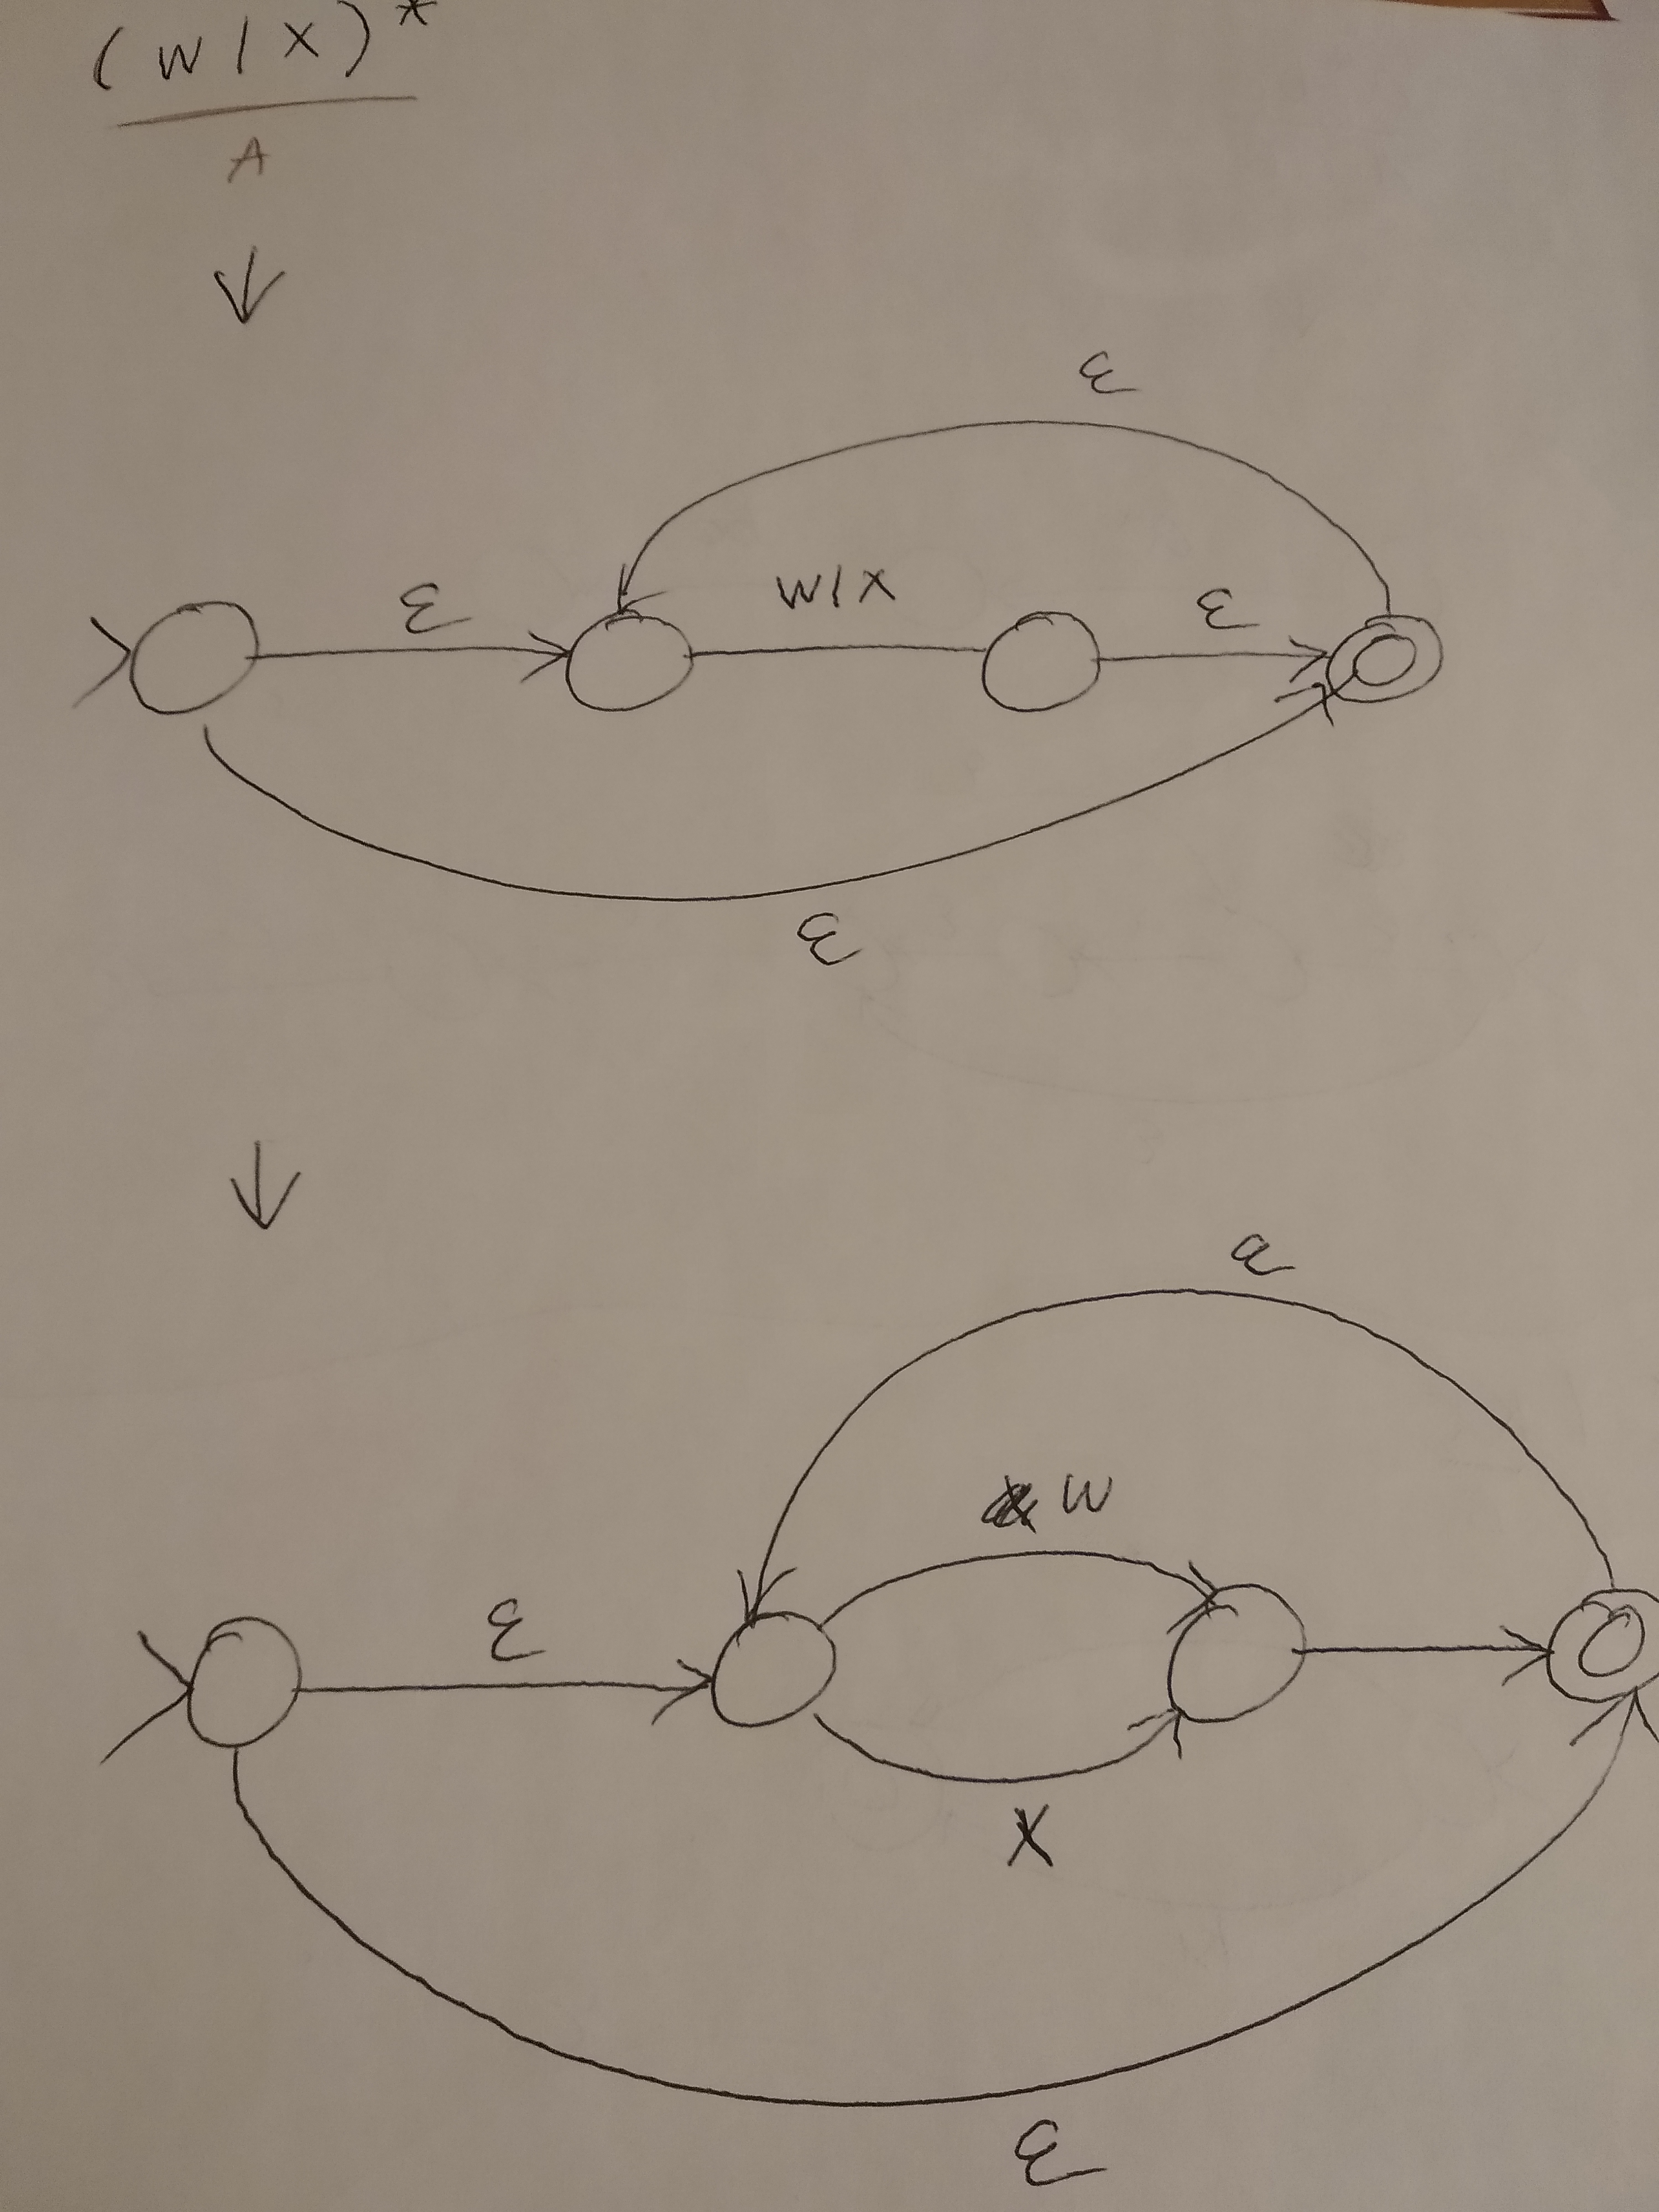 (W|X)*
A
ε
ε W|X ε
ε
ε
W
ε
X
ε